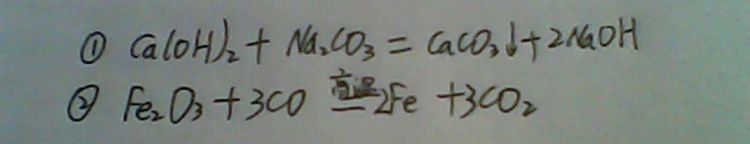 ① Ca(OH)₂ + Na₂CO₃ = CaCO₃↓ + 2NaOH
② Fe₂O₃ + 3CO 高温 = 2Fe + 3CO₂